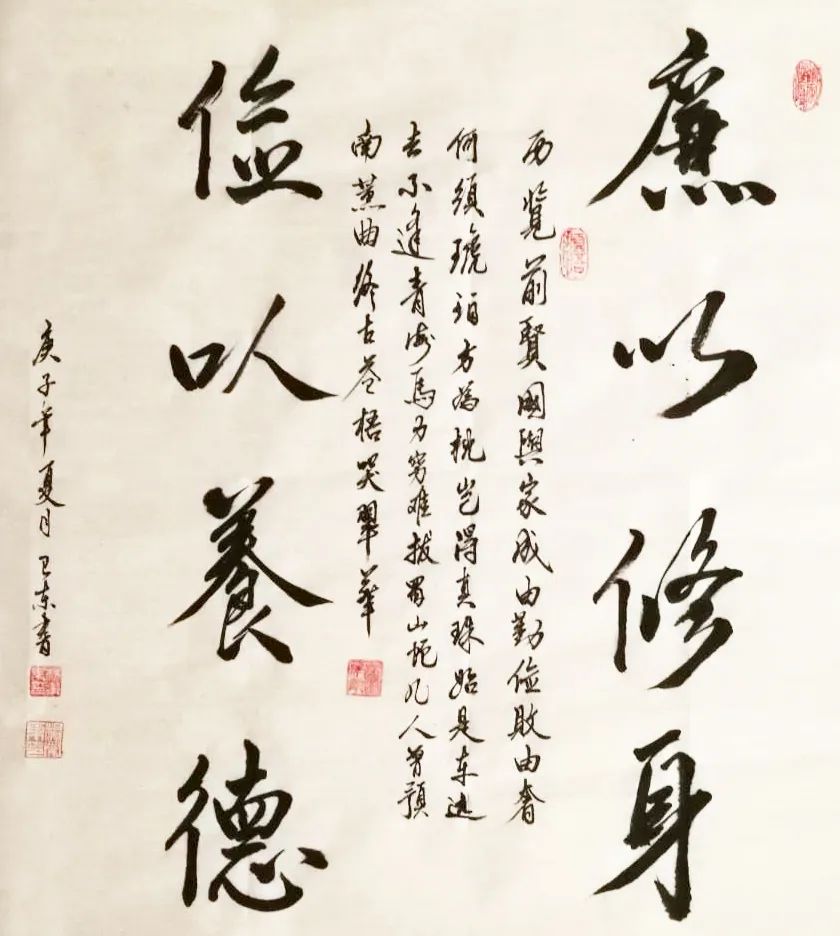 廉以修身
覽前賢國與家成由勤儉敗由奢
何須琥珀方為枕豈得真珠始是車運
去不逢青海馬力窮難拔蜀山蛇几人曾預
南薰曲終古蒼梧哭翠華
儉以養德
庚子年夏月卫东書